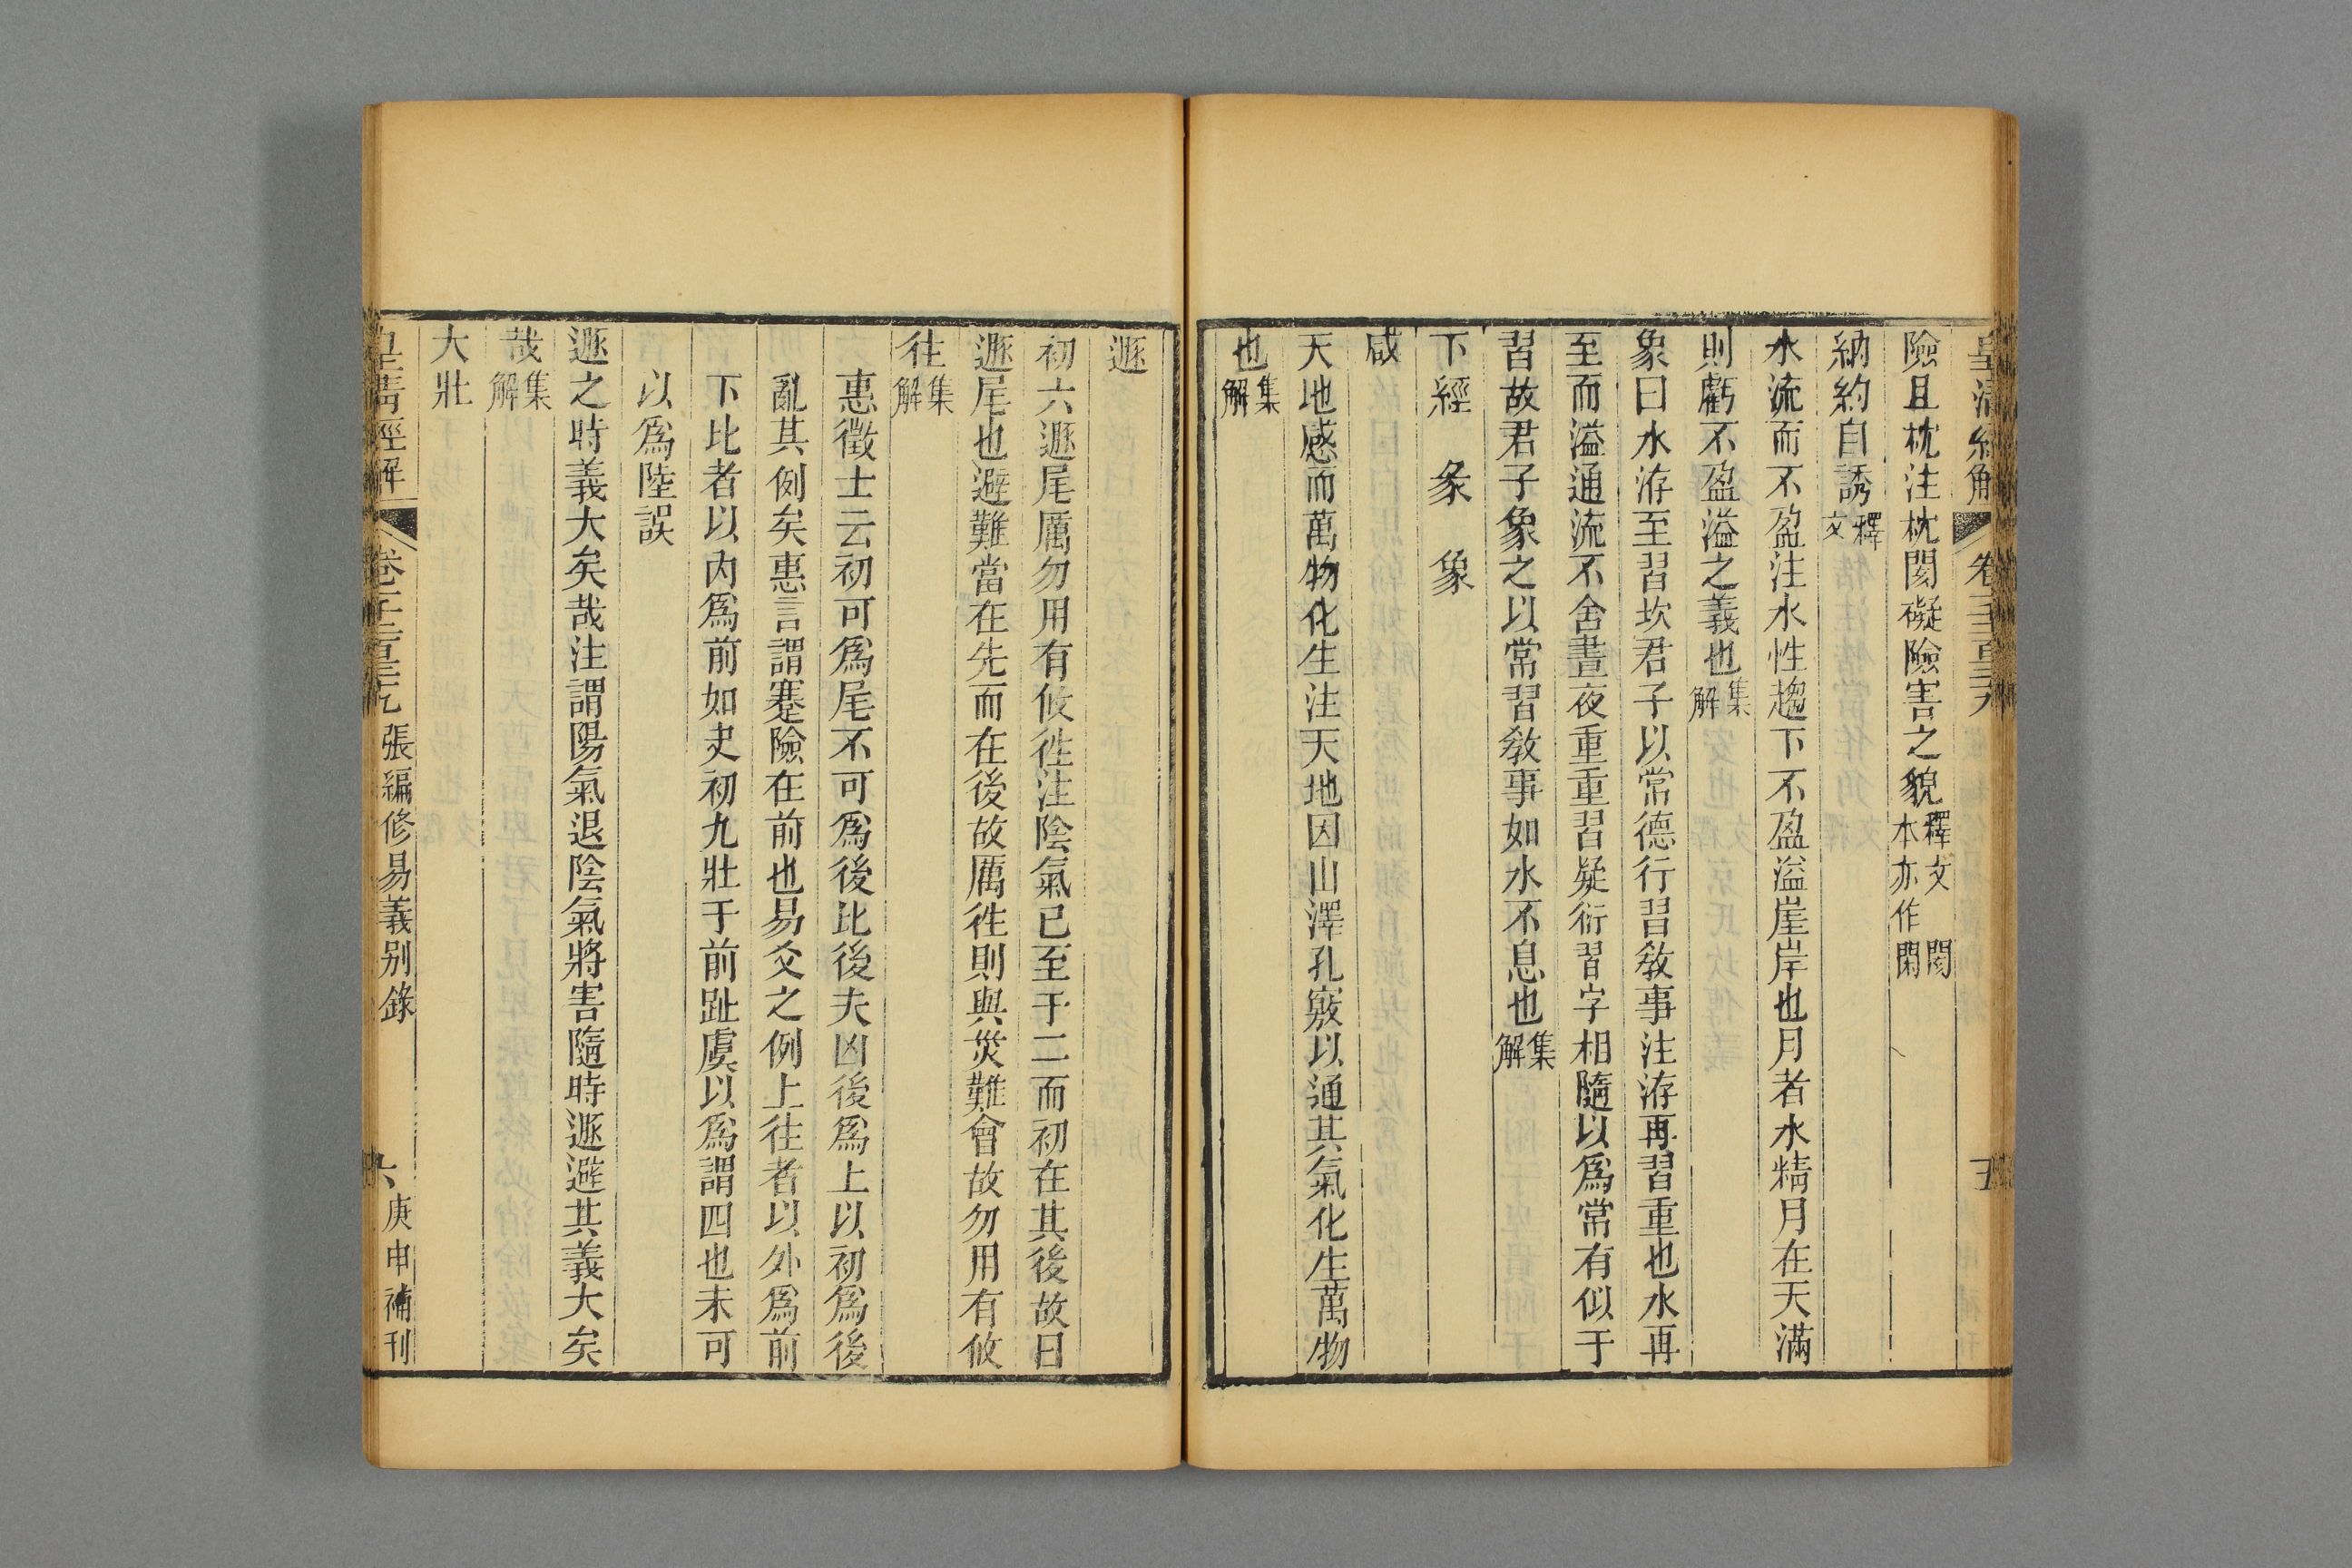 險且枕注枕閡礙險害之貌釋文閡本亦作閑
納約自誘釋文
水流而不盈注水性趨下不盈溢崖岸也月者水精月在天滿
則虧不盈溢之義也集解
象曰水洊至習坎君子以常德行習敎事注洊再習重也水再
至而溢通流不舍晝夜重重習疑衍習字相隨以爲常有似于
習故君子象之以常習敎事如水不息也集解
下經 彖 象
咸
天地感而萬物化生注天地因山澤孔竅以通其氣化生萬物
也集解
遯
初六遯尾厲勿用有攸徃注陰氣已至于二而初在其後故曰
遯尾也避難當在先而在後故厲徃則與災難會故勿用有攸
徃集解
惠徵士云初可爲尾不可爲後比後夫凶後爲上以初爲後
亂其例矣惠言謂蹇險在前也易爻之例上往者以外爲前
下比者以內爲前如夬初九壯于前趾虞以爲謂四也未可
以爲陸誤
遯之時義大矣哉注謂陽氣退陰氣將害隨時遯避其義大矣
哉集解
大壯
皇清經解 卷千二百三十九 張編修易義别錄 六 庚申補刊